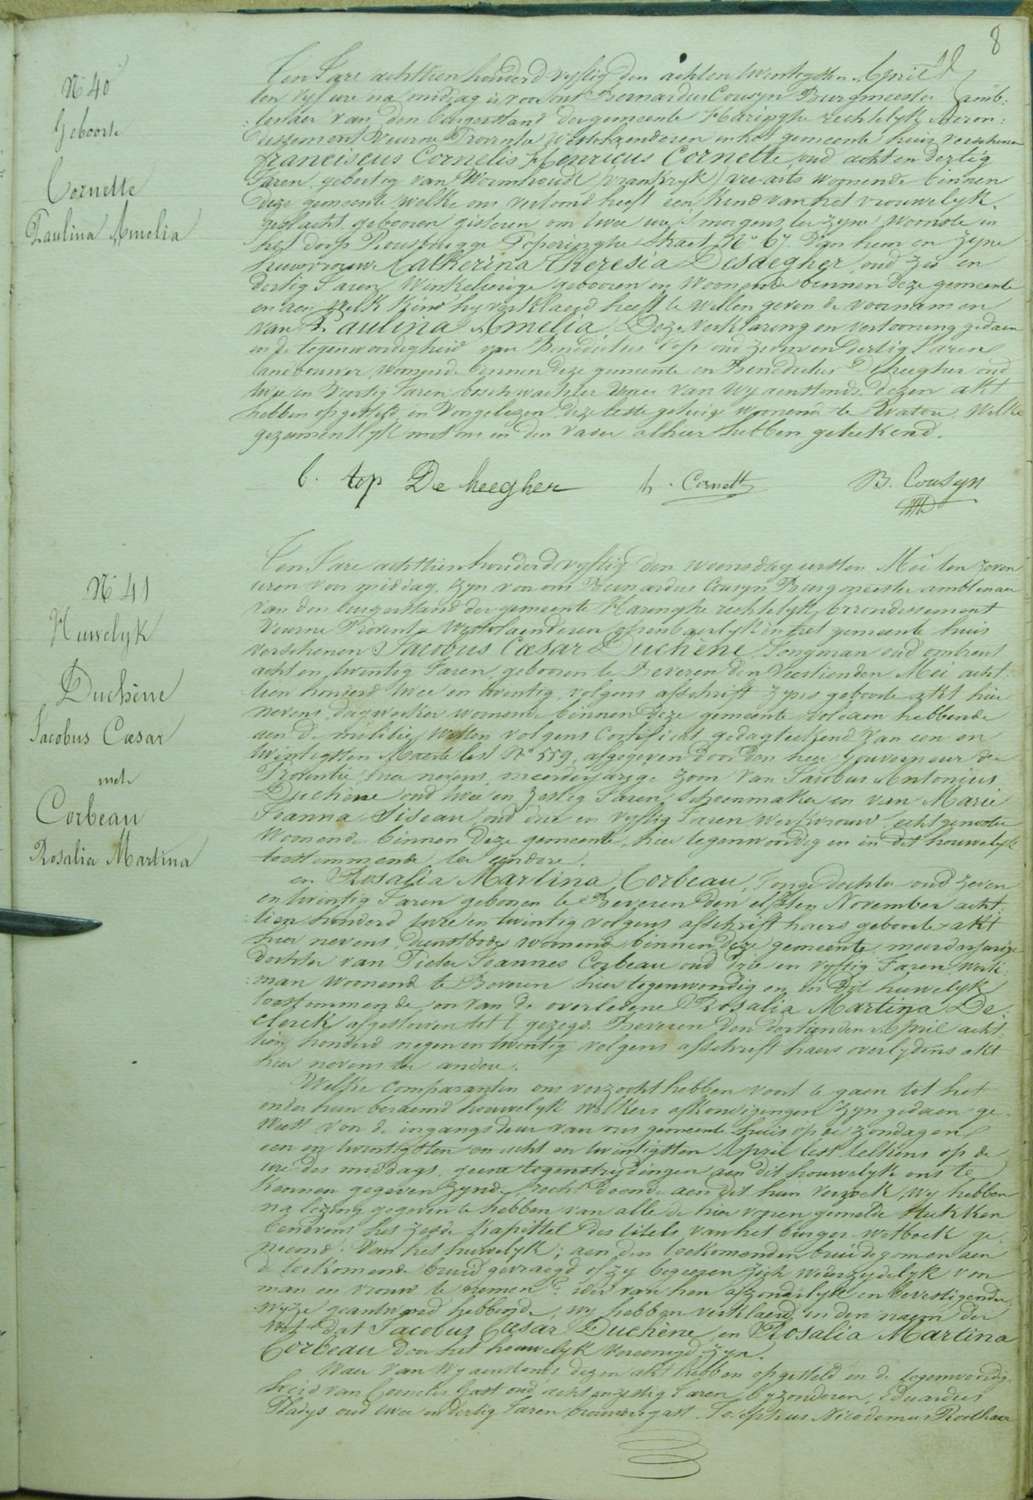 8
N 40
Geboorte
Cornette
Paulina Amelia
Ten Jare achttien honderd vyftig den achten twintigsten April
ten vyf ure na middag is voor ons Bernardus Cousyn Burgmeester amb-
tenaer van den burgerstand der gemeente Haringhe rechtelyk Arron-
dissement Veurne Provintie Westvlaenderen in het gemeente huis verschenen
Franciscus Cornelis Henricus Cornette oud acht en dertig
Jaren gebortig van Wormhoudt Vrankryk vee-arts woonende binnen
deze gemeente welke ons vertoond heeft een kind van het vrouwelyk
geslacht gebooren gisteren om twee ure s'morgens ter zyne woonste in
het dorp Rousbrugge Poperinghe Straet N° 67. Van hem en zyne
huisvrouwe Catherina Theresia Desaegher oud zes en
dertig Jaren Winkelierige gebooren en woonende binnen deze gemeente
en aen welk kind hy verklaerd heeft te willen geven de voornamen
van Paulina Amelia. Deze verklaring en vertooning gedaen
in de tegenwoordigheid van Benedictus Top oud zeven en dertig Jaren
landbouwer, woonende binnen deze gemeente en Benedictus Deheegher oud
twee en veertig Jaren boschwachter waer van wy aenstonds dezen akt
hebben opgesteld en voorgelezen deze leste getuige woonende te Watou Welke
gezamentlyk met ons en den vader alhier hebben geteekend.
b. top De heegher h. Cornette B. Cousyn
N 41
Huwelyk
Duchêne
Jacobus Cæsar
met
Corbeau
Rosalia Martina
Ten Jare achttien honderd vyftig den woensdag eersten Mei ten zeven
uren voor middag, zyn voor ons Bernardus Cousyn Burgmeester ambtenaer
van den burgerstand der gemeente Haringhe rechtelyk Arrondissement
Veurne Provintie Westvlaenderen openbaerlyk in het gemeente huis
verschenen Jacobus Cæsar Duchêne Jongman oud omtrent
acht en twintig Jaren gebooren te Beveren den veertienden Mei acht-
tien honderd twee en twintig volgens afschrift zyns geboorte akt hier
nevens, dagwerker woonende binnen deze gemeente voldaen hebbende
aen de militie wetten volgens Certificat gedagteekend van een en
twintigsten Maerte lest N° 559, afgegeven door den heer Gouverneur der
Provintie hier nevens, meerderjarige zoon van Jacobus Antonius
Duchêne oud twee en zestig Jaren, Schoenmaker en van Marie
Joanna oud drie en vyftig Jaren Werkvrouw echtgenoten
woonende binnen deze gemeente, hier tegenwoordig en in dit houwelyk
toestemmende ter eendere.
en Rosalia Martina Corbeau, Jonge dochter oud zeven
en twintig Jaren gebooren te Beveren den elfsten November acht-
tien honderd twee en twintig volgens afschrift haers geboorte akt
hier nevens dienstbode woonende binnen deze gemeente, meerderjarige
dochter van Pieter Joannes Corbeau oud drie en vyftig Jaren Werk-
man woonende te Beveren hier tegenwoordig en in dit huwelyk
toestemmende en van de overledene Rosalia Martina De-
clerck afgestorven tot t gezegd Beveren den dertienden April acht-
tien honderd negen en twintig volgens afschrift haers overlydens akt
hier nevens ter andere.
Welke Comparanten ons verzocht hebben voort te gaen tot het
onder hun beraemd houwelyk welkers afkondigingen zyn gedaen ge-
weest voor de ingangs deur van ons gemeente huis op de zondagen
een en twintigsten en acht en twintigsten April lest telkens op de
ure des middags, geene tegenstrydingen aen dit houwelyk ons te
kennen gegeven zynde, recht doende aen dit hun verzoek, wy hebben
na lezing gegeven te hebben van alle de hier voren gemelde Stukken
benevens het zesde kapittel des titels van het burger wetboek ge-
noemd: Van het huwelyk; aen den toekomenden bruidegom en aen
de toekomende bruid gevraegd of zy begeeren zich wederzydelyk voor
man en vrouw te nemen? ider van hen afzonderlyk en bevestigender
wyze geantwoord hebbende, wy hebben verklaerd in den naem der
wet dat Jacobus Cæsar Duchêne en Rosalia Martina
Corbeau door het houwelyk vereenigd zyn.
Waer van wy aenstonds dezen akt hebben opgesteld in de tegenwoordig-
heid van Cornelis Gast oud acht en zestig Jaren byzonderen, Eduardus
Pladys oud twee en dertig Jaren brouwersgast Josephus Nicodemus